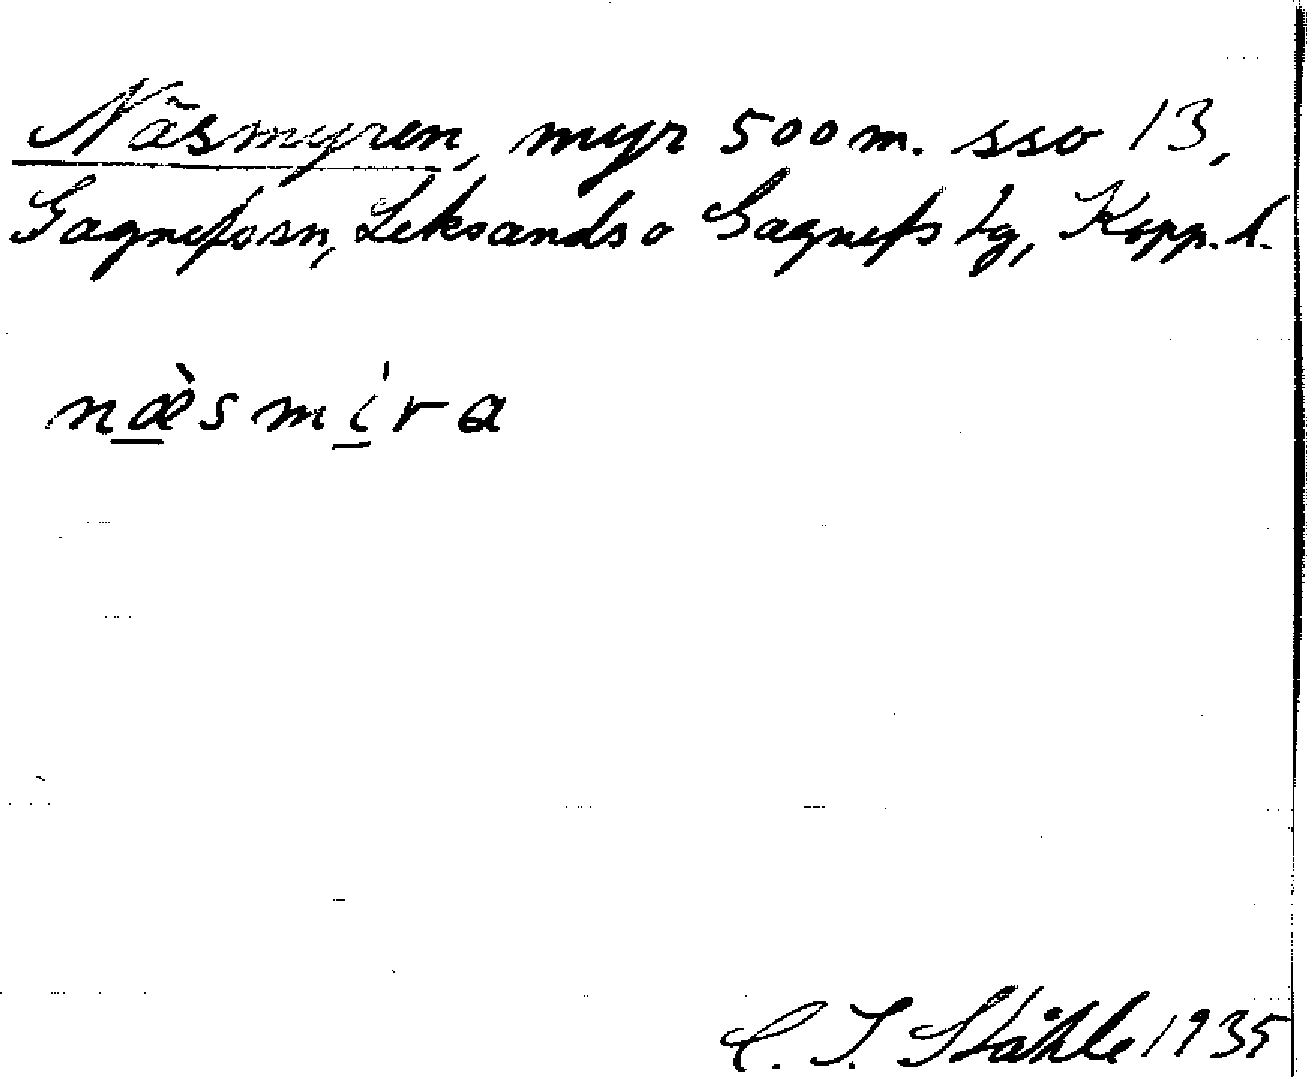 Näsmyren, myr 500 m. sso 13,
Gagnefs sn, Leksands o Gagnefs tg, Kopp. l.
næ̀smíra
C. I. Ståhle 1935